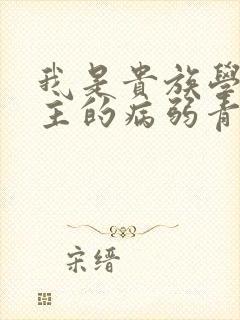 我是貴族學
主的病弱青
宋缙